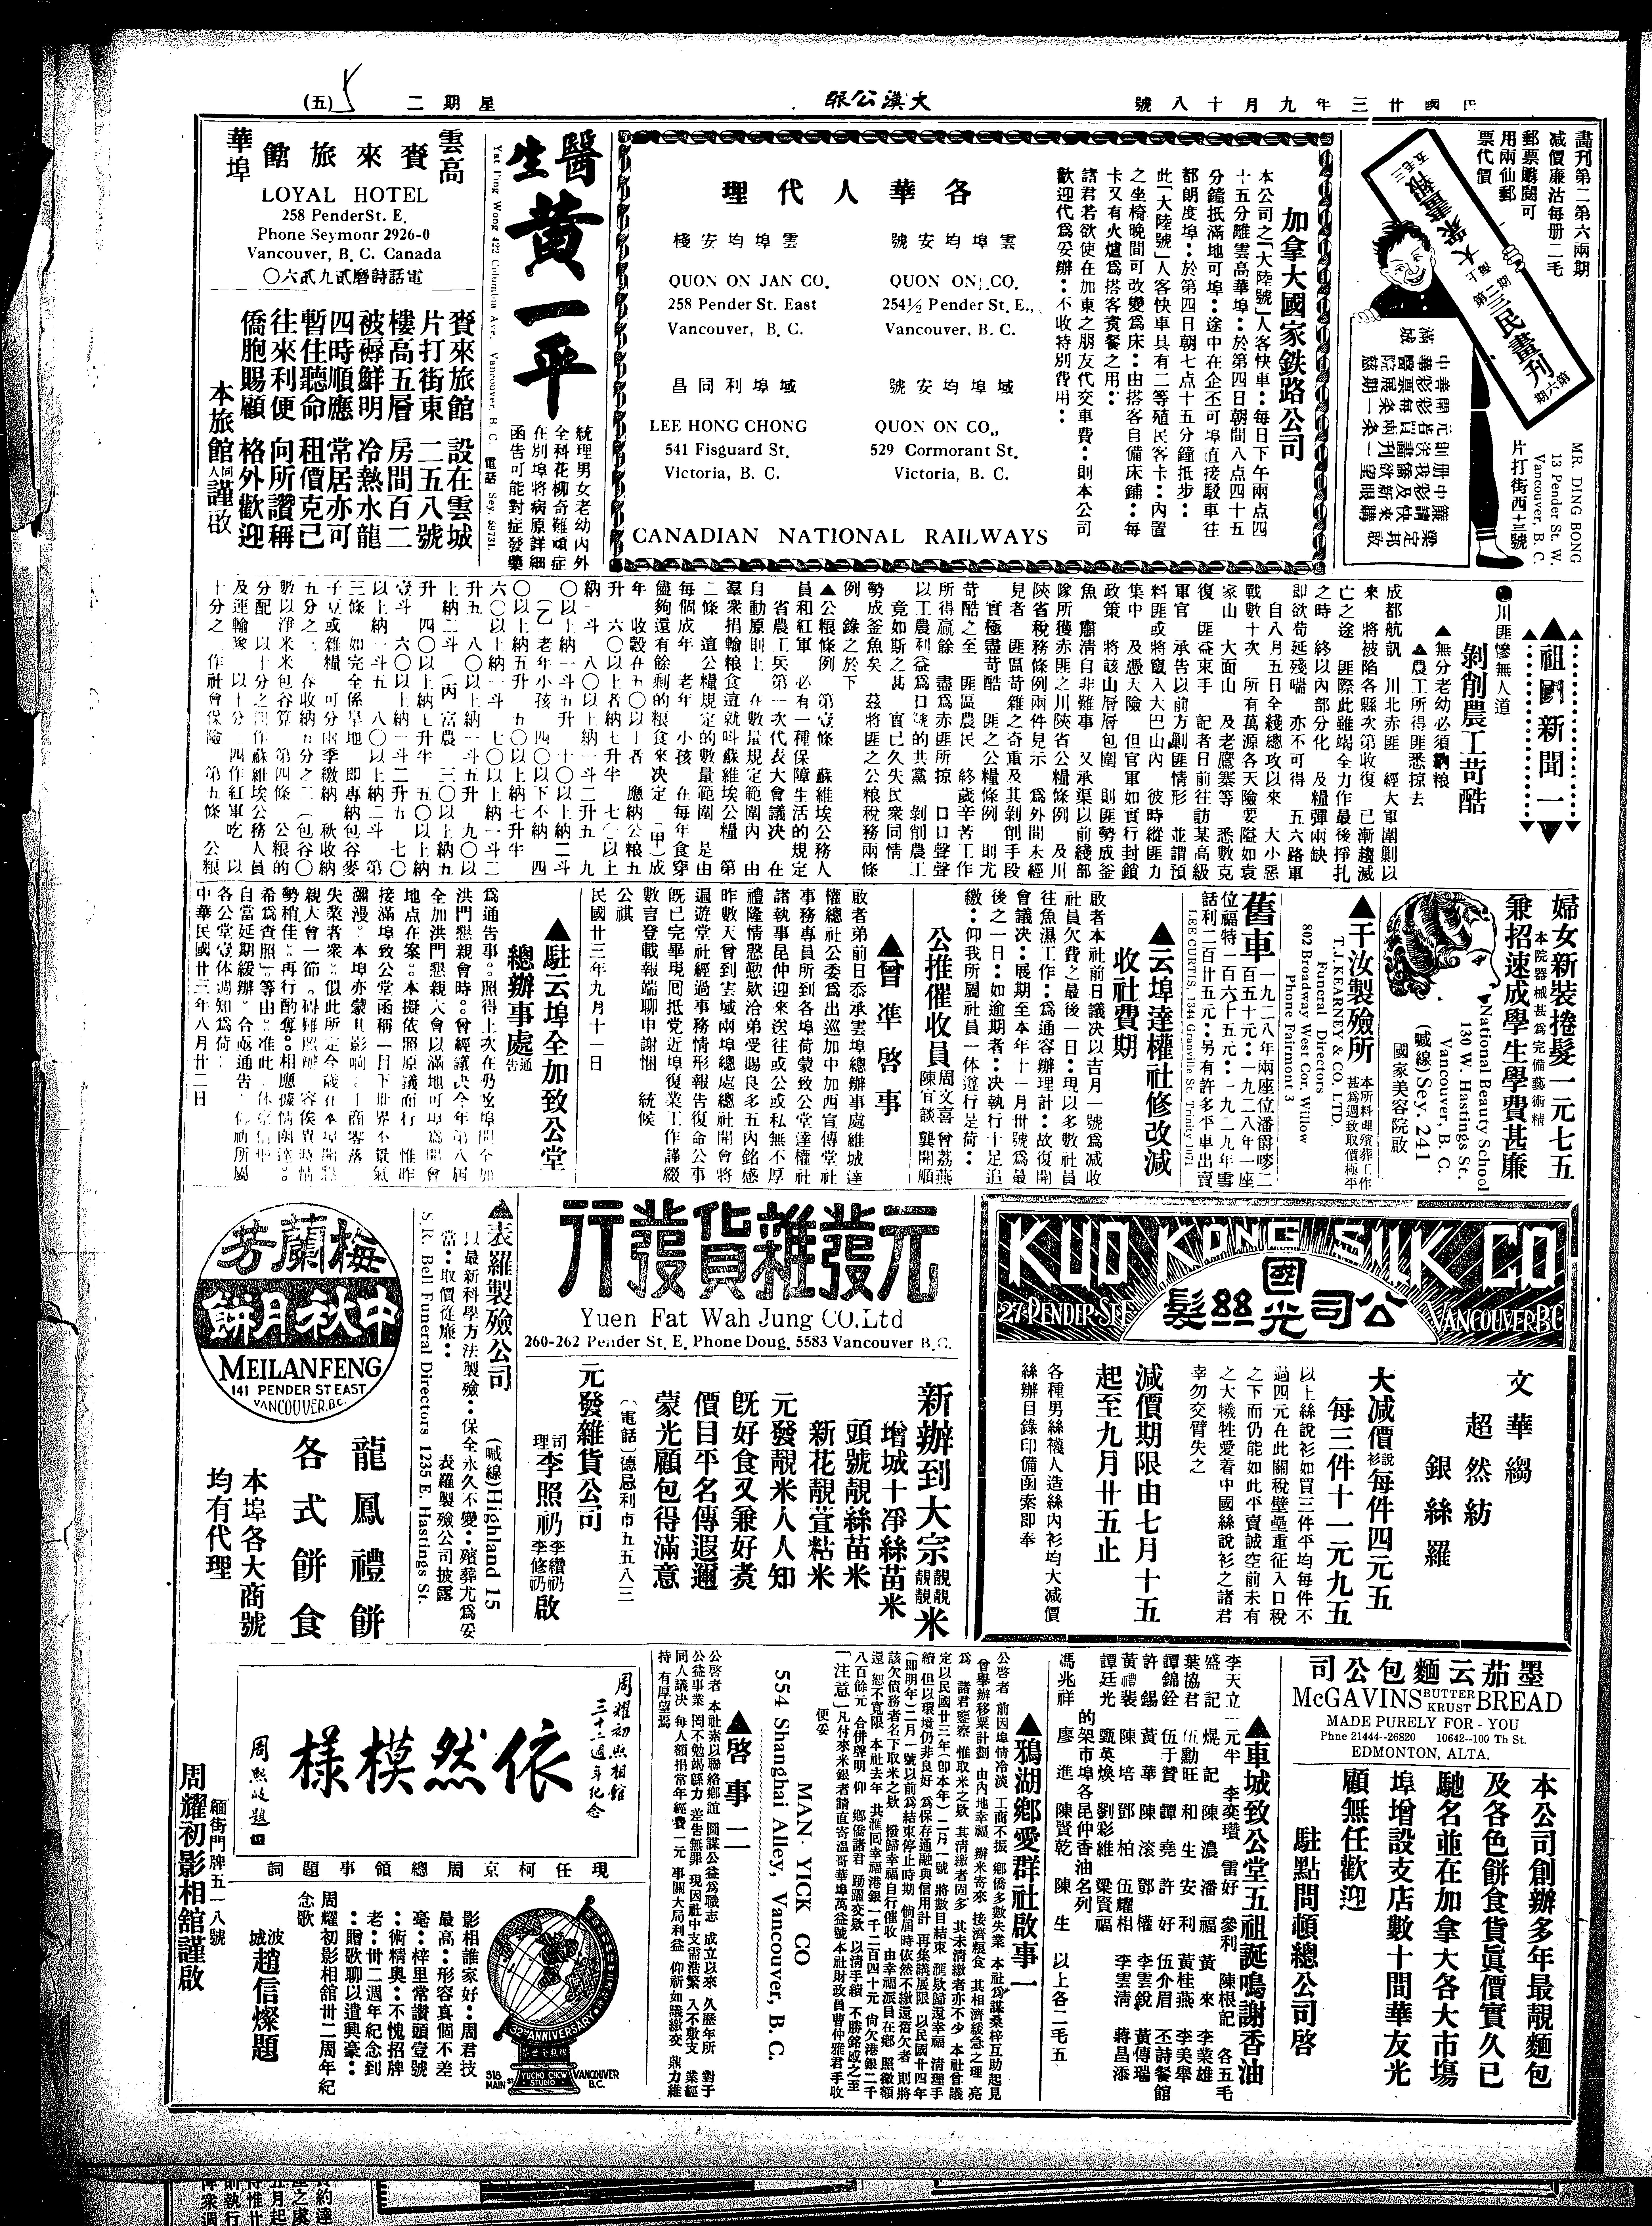 民國廿三年九月十八號
大漢公報
星期二
(五)
畫刊第二第六兩期
減價廉沽每册二毛
郵票購閱可
用兩仙郵
票代價
三民畫刊
第六期
MR. DING BONG
13 Pender St. W.
Vancouver, B. C.
片打街西十三號
加拿大國家鉄路公司
本公司之「大陸號」人客快車：每日下午兩点四
十五分離雲高華埠：於第四日朝間八点四十五
分鐘抵滿地可埠：途中在企丕可埠直接駁車往
都朗度埠：於第四日朝七点十五分鐘抵步：
此「大陸號」人客快車具有二等殖民客卡：內置
之坐椅晚間可改變爲床：由搭客自備床鋪：每
卡又有火爐爲搭客煑餐之用：
諸君若欲使在加東之朋友代交車費：則本公司
歡迎代爲妥辦：不收特別費用：
各華人代理
雲埠均安號
QUON ON CO.
254½ Pender St. E.,
Vancouver, B. C.
雲埠均安棧
QUON ON JAN CO.
258 Pender St. East
Vancouver, B. C.
域埠均安號
QUON ON CO.,
529 Cormorant St.
Victoria, B. C.
域埠利同昌
LEE HONG CHONG
541 Fisguard St.
Victoria, B. C.
CANADIAN NATIONAL RAILWAYS
醫生黃一平
統理男女老幼內外
全科花柳奇難頑症
在別埠將病原詳細
函告可能對症發藥
Yat Ping Wong 422 Columbia Ave. Vancouver, B. C. 電話 Sey. 6973L
雲高華埠
賚來旅館
LOYAL HOTEL
258 PenderSt. E.
Phone Seymonr 2926-0
Vancouver, B. C. Canada
電話詩磨貳九貳六〇
賚來旅館 設在雲城
片打街東 二五八號
樓高五層 房間百二
被褥鮮明 冷熱水龍
四時順應 常居亦可
暫住聽命 租價克己
往來利便 向所讚稱
僑胞賜顧 格外歡迎
本旅館同人謹啟
▲祖國新聞一▼
●川匪慘無人道
剝削農工苛酷
▲無分老幼必須納粮
▲農工所得匪悉掠去
成都航訊 川北赤匪 經大軍圍剿以
來 將被陷各縣次第收復 已漸趨滅
亡之途 匪際此雖竭全力作最後掙扎
之時 終以內部分化 及糧彈兩缺
即欲苟延殘喘 亦不可得 五六路軍
自八月五日全綫總攻以來 大小惡
戰數十次 所有萬源各天險要隘如袁
家山 大面山 及老鷹寨等 悉數克
復 匪益束手 記者日前往訪某高級
軍官 承告以前方剿匪情形 並謂預
料匪或將竄入大巴山內 彼時縱匪力
集中 及憑大險 但官軍如實行封鎖
政策 將該山層層包圍 則匪勢成釜
魚 肅清自非難事 又承渠以前綫部
隊所獲赤匪之川陝省公糧條例 及川
陝省稅務條例兩件見示 爲外間未經
見者 匪區苛雜之奇重及其剝削手段
實極盡苛酷 匪之公糧條例 則尤
苛酷之至 匪區農民 終歲辛苦工作
所得贏餘 盡爲赤匪所掠 口口聲聲
以工農利益爲口號的共黨 剝削農工
竟如斯之甚 實已久失民衆同情
勢成釜魚矣 茲將匪之公粮稅務兩條
例 錄之於下
▲公粮條例 第壹條 蘇維埃公務人
員和紅軍 必有一種保障生活的規定
省農工兵第一次代表大會議决 在
自動原則上 在數量規定範圍內 由
羣衆捐輸粮食這就叫蘇維埃公糧 第
二條 這公糧規定的數量範圍 是由
每個成年 老年 小孩 在每年食穿
儘夠還有餘剩的粮食來决定 (甲)成
年 收穀在五〇以上者 應納公粮五
升 六〇以上者納七升半 七〇以上
納一斗 八〇以上納一斗二升五 九
〇以上納一斗五升 十〇以上納二斗
(乙)老年小孩 四〇以下不納 四
〇以上納五升 五〇以上納七升半
六〇以上納一斗 七〇以上納一斗二
升五 八〇以上納一斗五升 九〇以
上納二斗 (丙)富農 三〇以上納五
升 四〇以上納七升半 五〇以上納
壹斗 六〇以上納一斗二升五 七〇
以上納一斗五 八〇以上納二斗 第
三條 如完全係旱地 即專納包谷麥
子豆或雜糧 可分兩季繳納 秋收納
五分之
數以淨米米包谷算 第四條 公粮的
分配 以十分之四作蘇維埃公務人員
及運輸隊 以十分 四作紅軍吃 以
十分之 作社會保險 第五條 公粮
婦女新裝捲髮一元七五
本院器械甚爲完備藝術精
兼招速成學生學費甚廉
National Beauty School
130 W. Hastings St.
Vancouver, B. C.
(喊線) Sey. 241
國家美容院啟
▲干汝製殮所
本所料理殯葬工作
甚爲週致取價極平
T. J. KEARNEY & CO. LTD.
Funeral Directors
802 Broadway West Cor. Willow
Phone Fairmont 3
舊車
一九二八年兩座位潘爵嘜二
百五十元：一九二八年一座
位福特一百六十五元：一九二九年雪
話利二百廿五元：另有許多平車出賣
LEE CURTIS, 1344 Granville St. Trinity 1071
▲云埠達權社修改減
收社費期
啟者本社前日議决以吉月一號爲減收
社員欠費之最後一日：現以多數社員
往魚濕工作：爲通容辦理計：故復開
會議决：展期至本年十一月卅號爲最
後之一日：如逾期者：决執行十足追
繳：仰我所屬社員一体遵行是荷：
公推催收員 周文喜 曾荔燕
陳宜談 龔開順
▲曾準啓事
啟者弟前日忝承雲埠總辦事處維城達
權總社公委爲出巡加中加西宣傳堂社
事務專員所到各埠荷蒙致公堂達權社
諸執事昆仲迎來送往或公或私無不厚
禮隆情慇懃欵洽弟受賜良多五內銘感
昨數天曾到雲城兩埠總處總社開會將
遍遊堂社經過事務情形報告復命公事
既已完畢現回抵党近埠復業工作謹綴
數言登載報端聊申謝悃 統候
公祺
民國廿三年九月十一日
▲駐云埠全加致公堂
總辦事處通告
爲通告事。照得上次在 埠開全加
洪門懇親會時。曾經議决今年第八屆
全加洪門懇親大會以滿地可埠爲開會
地点在案。本擬依照原議而行 惟昨
接滿埠致公堂函稱一目下世界不景氣
瀰漫。本埠亦蒙其影响 商零落
失業者衆。似此所定今歲在本埠開懇
親大會一節。碍難照辦 容俟異時情
勢稍佳。再行酌奪。相應據情函達。
希爲查照」等由。准此
自當延期緩辦。合亟通告 所屬
各公堂壹体週知爲荷
中華民國廿三年八月廿二日
KUO KONG SILK CO
國光絲髮公司
27-PENDER-ST-E
VANCOUVER B.C.
文華縐
超然紡
銀絲羅
大減價說衫每件四元五
每三件十一元九五
以上絲說衫如買三件平均每件不
過四元在此關稅壁壘重征入口稅
之下而仍能如此平賣誠空前未有
之大犧牲愛着中國絲說衫之諸君
幸勿交臂失之
減價期限由七月十五
起至九月廿五止
各種男絲襪人造絲內衫均大減價
絲辦目錄印備函索即奉
元發雜貨發行
Yuen Fat Wah Jung CO. Ltd
260-262 Pender St. E. Phone Doug. 5583 Vancouver B.C.
新辦到大宗靚靚靚靚米
增城十淨絲苗米
頭號靚絲苗米
新花靚萱粘米
元發靚米人人知
既好食又兼好煑
價目平名傳遐邇
蒙光顧包得滿意
(電話)德忌利市五五八三
元發雜貨公司
司理 李照礽 李纘礽 李修礽 啟
▲表羅製殮公司
(喊線) Highland 15
以最新科學方法製殮：保全永久不變：殯葬尤爲妥
當：取價從廉： 表羅製殮公司披露
S. R. Bell Funeral Directors 1235 E. Hastings St.
梅蘭芳
中秋月餅
MEILANFENG
141 PENDER ST EAST
VANCOUVER. B.C.
龍鳳禮餅
各式餅食
本埠各大商號
均有代理
墨茄云麵包公司
McGAVINS BUTTER KRUST BREAD
MADE PURELY FOR - YOU
Phne 21444--26820 10642--100 Th St.
EDMONTON, ALTA.
本公司創辦多年最靚麵包
及各色餅食貨眞價實久已
馳名並在加拿大各大市塲
埠增設支店數十間華友光
顧無任歡迎
駐點問頓總公司啓
▲車城致公堂五祖誕鳴謝香油
李天立一元半 李奕瓚 雷好 參利 陳根記 各五毛
盛記 焜記 陳濃 潘福 黃來 李業雄
葉協君 伍勵旺 和生 安利 黃桂燕 李美舉
譚錦銓 伍于贊 譚堯 許好 伍介眉 丕詩餐館
許錫 黃華 陳滚 鄧權 李雲銳 黃傳瑞
黃禮裴 陳培 鄧柏 伍耀相 李雲清 蔣昌添
譚廷光 甄英煥 劉彩維 梁賢福
的架市埠各昆仲香油名列
馮兆祥 廖進 陳賢乾 陳生 以上各二毛五
▲鴉湖鄉愛群社啟事一
公啓者 前因埠情冷淡 工商不振 鄉僑多數失業 本社爲謀桑梓互助起見
曾舉辦移粟計劃 由內地幸福 辦米寄來 接濟糧食 其相濟緩急之理 亮
爲 諸君鑒察 惟取米之欵 其清繳者固多 其未清繳者亦不少 本社會議
定以民國廿三年(卽本年)二月一號 將數目結束 滙欵歸還幸福 清理手
續 但以環境仍非良好 爲保存通融與信用計 再集議展限 以民國廿四年
(卽明年)二月一號以前爲結束停止時期 倘屆時依然不繳還舊欠者 則將
該欠債務者名下取米之欵 撥歸幸福自行催收 由幸福派員在鄉 照繳額
還 恕不寬限 本社去年 共滙回幸福港銀一千二百四十元 尙欠港銀二千
八百餘元 合併聲明 仰 鄉僑諸君 踴躍交欵 以清手續 不勝銘感之至
「注意」凡付來米銀者請直寄溫哥華埠萬益號本社財政員曹仲雅君手收
便妥
MAN YICK CO
554 Shanghai Alley, Vancouver, B. C.
▲啓事二
公啓者 本社素以聯絡鄉誼 圖謀公益爲職志 成立以來 久歷年所 對于
公益事業 罔不勉竭緜力 差告無罪 現因社中支需浩繁 入不敷支 業經
同人議决 每人額捐常年經費一元 事關大局利益 仰祈如議繳交 鼎力維
持 有厚望焉
周耀初照相館
三十二週年紀念
依然模樣
周熙岐題
現任柯京周總領事題詞
影相誰家好：周君技
最高：形容真個不差
毫：梓里常讚頭壹號
：術精奧：不愧招牌
老：卅二週年紀念到
：贈歌聊以遺興豪：
周耀初影相舘卅二周年紀
念歌
波城趙信燦題
32ND ANNIVERSARY
YUCHO CHOW STUDIO
518 MAIN ST
VANCOUVER B.C.
緬街門牌五一八號
周耀初影相舘謹啟